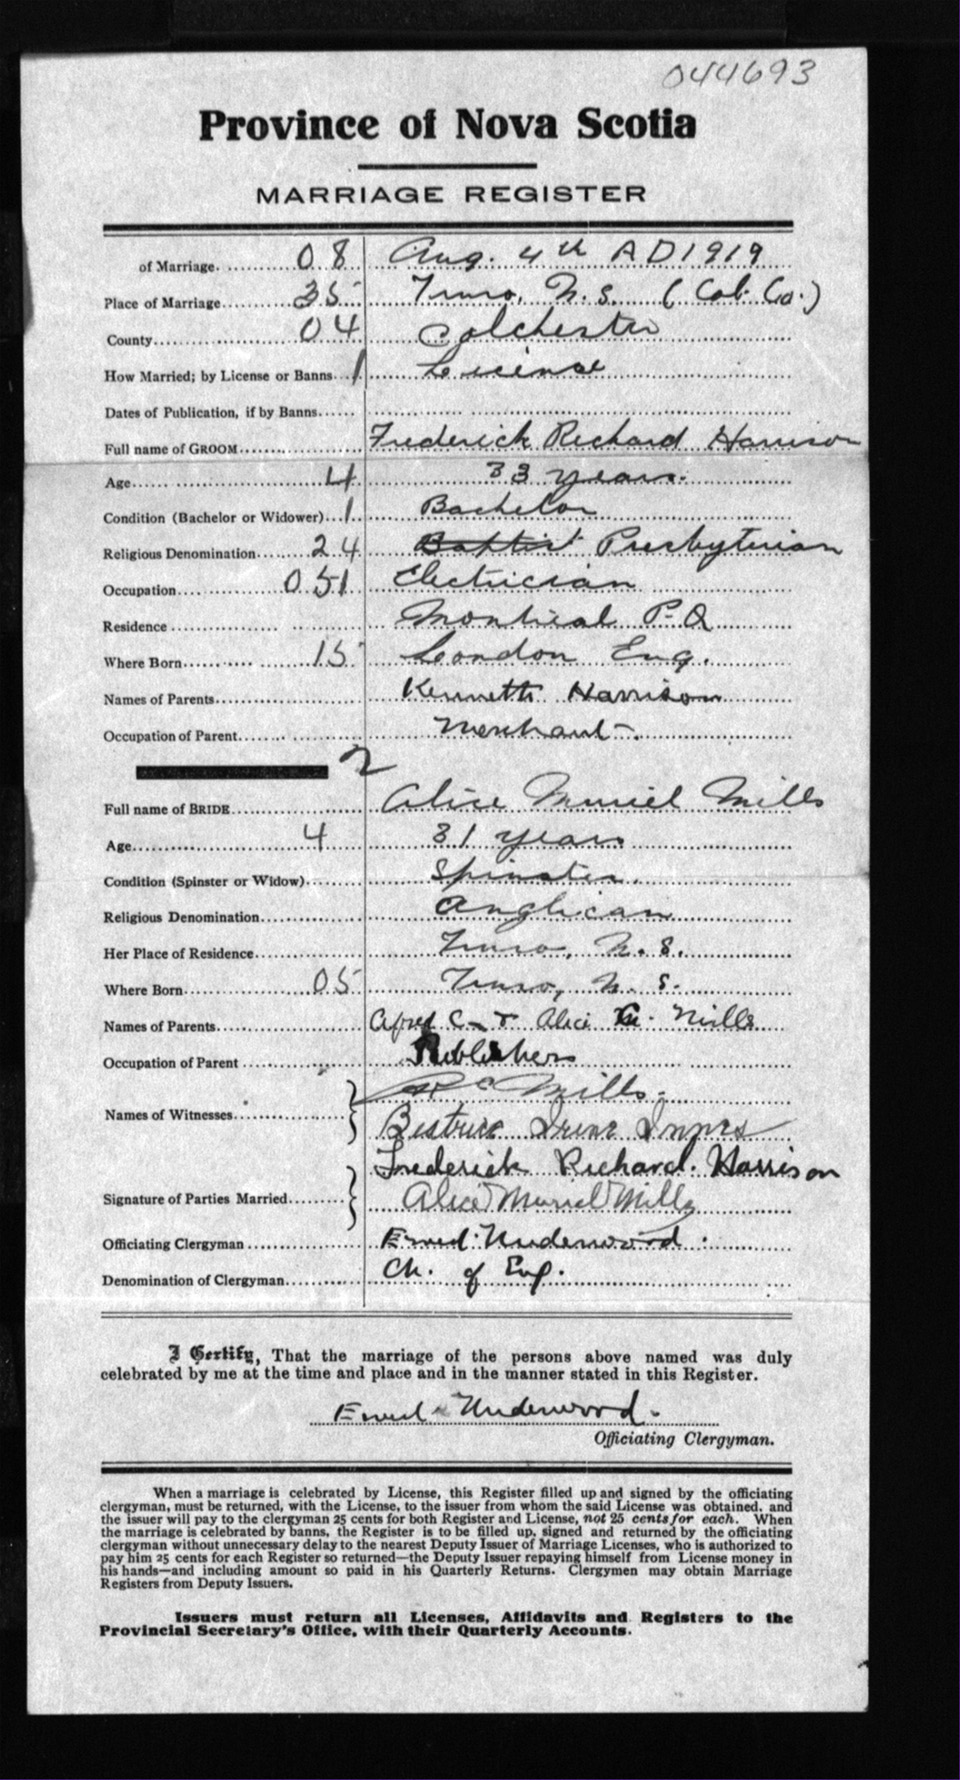 044693
Province of Nova Scotia
MARRIAGE REGISTER
of Marriage. 08 Aug. 4th A D 1919
Place of Marriage 35 Truro, N. S. (Col. Co.)
County 04 Colchester
How Married; by License or Banns 1 License
Dates of Publication, if by Banns
Full name of GROOM Frederick Richard Harrison
Age 4 33 years.
Condition (Bachelor or Widower) 1 Bachelor
Religious Denomination 24 Baptist Presbyterian
Occupation 051 Electrician
Residence Montreal P. Q
Where Born 15 London Eng.
Names of Parents Kenneth Harrison
Occupation of Parent Merchant
2
Full name of BRIDE Alice Muriel Mills
Age 4 31 years
Condition (Spinster or Widow) Spinster.
Religious Denomination Anglican
Her Place of Residence Truro, N. S.
Where Born 05 Truro, N. S.
Names of Parents C. & Alice Mills
Occupation of Parent Publishers
Names of Witnesses C Mills.
Beatrice Irene Innes
Frederick Richard. Harrison
Signature of Parties Married Alice Muriel Mills
Officiating Clergyman Underwood.
Denomination of Clergyman Ch. of Eng.
I Certify, That the marriage of the persons above named was duly
celebrated by me at the time and place and in the manner stated in this Register.
Underwood.
Officiating Clergyman.
When a marriage is celebrated by License, this Register filled up and signed by the officiating
clergyman, must be returned, with the License, to the issuer from whom the said License was obtained, and
the issuer will pay to the clergyman 25 cents for both Register and License, not 25 cents for each. When
the marriage is celebrated by banns, the Register is to be filled up, signed and returned by the officiating
clergyman without unnecessary delay to the nearest Deputy Issuer of Marriage Licenses, who is authorized to
pay him 25 cents for each Register so returned—the Deputy Issuer repaying himself from License money in
his hands—and including amount so paid in his Quarterly Returns. Clergymen may obtain Marriage
Registers from Deputy Issuers.
Issuers must return all Licenses, Affidavits and Registers to the
Provincial Secretary's Office, with their Quarterly Accounts.